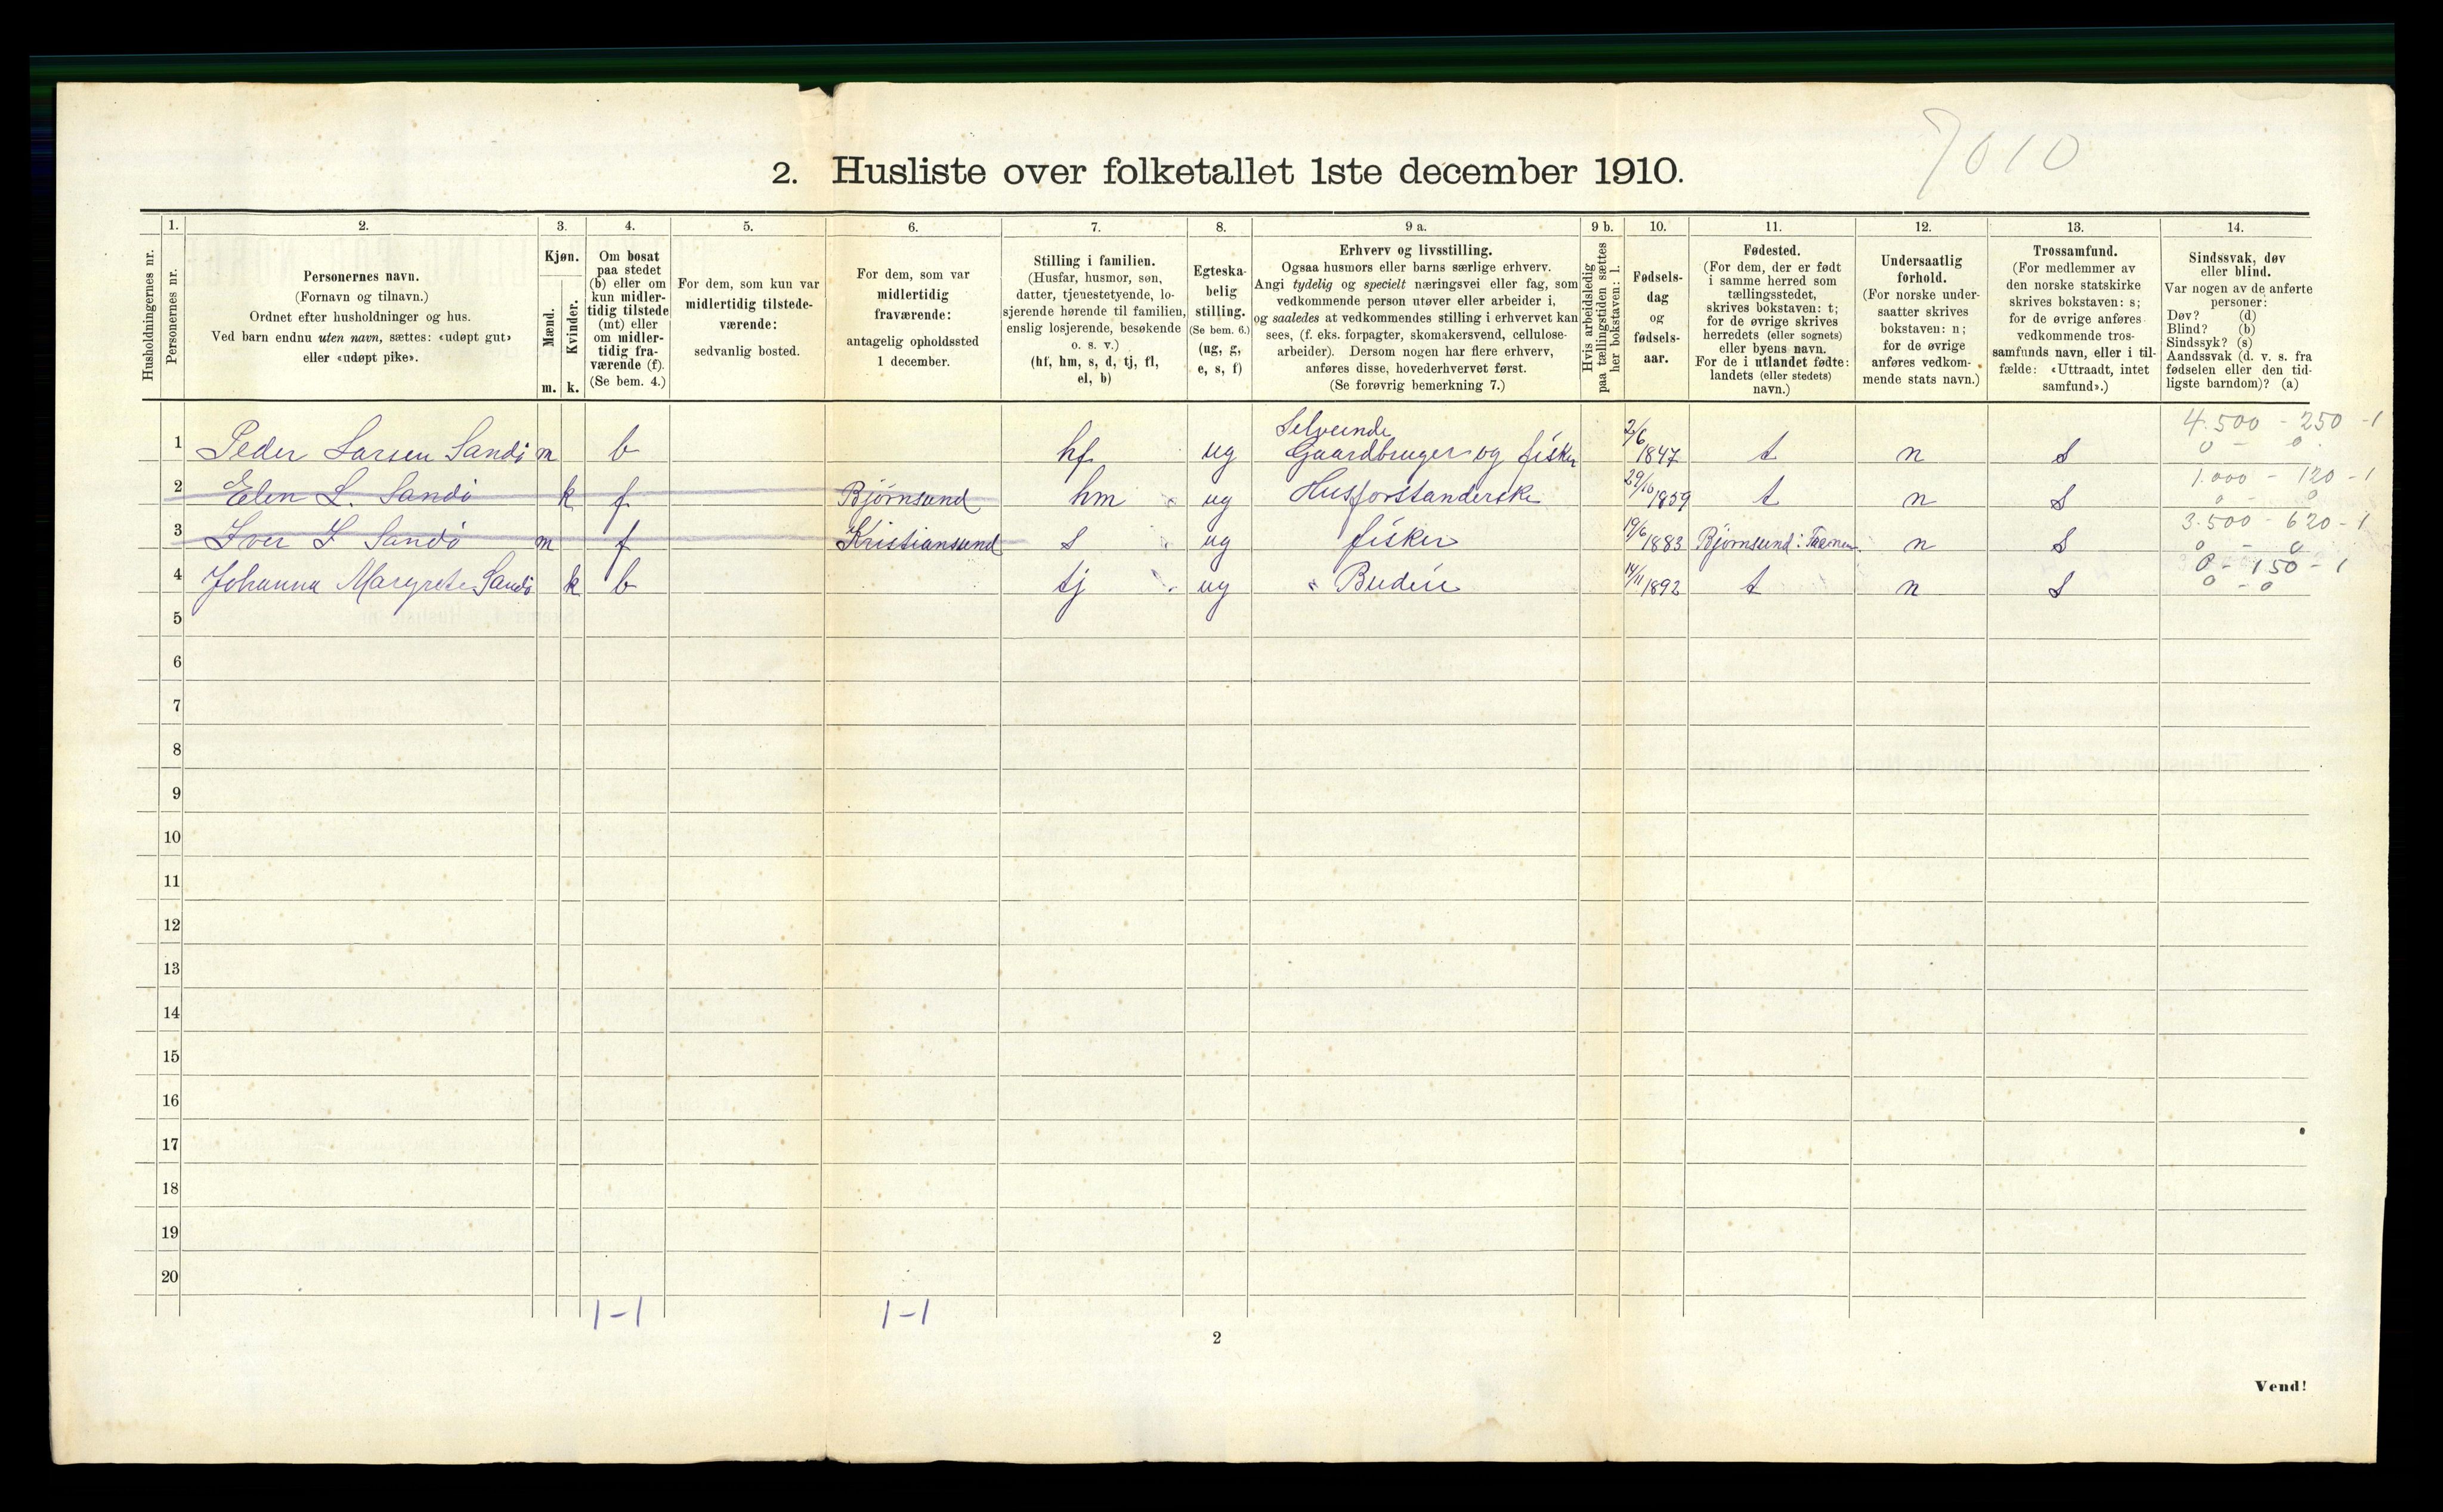 7010
2. Husliste over folketallet 1ste december 1910.
Husholdningernes nr.
1.
Personernes nr.
2.
Personernes navn.
(Fornavn og tilnavn.)
Ordnet efter husholdninger og hus.
Ved barn endnu uten navn, sættes: «udøpt gut»
eller «udøpt pike».
3.
Kjøn.
Mænd.
Kvinder.
m. k.
4.
Om bosat
paa stedet
(b) eller om
kun midler-
tidig tilstede
(mt) eller
om midler-
tidig fra-
værende (f).
(Se bem. 4.)
5.
For dem, som kun var
midlertidig tilstede-
værende:
sedvanlig bosted.
6.
For dem, som var
midlertidig
fraværende:
antagelig opholdssted
1 december.
7.
Stilling i familien.
(Husfar, husmor, søn,
datter, tjenestetyende, lo-
sjerende hørende til familien,
enslig losjerende, besøkende
o. s. v.)
(hf, hm, s, d, tj, fl,
el, b)
8.
Egteska-
belig
stilling.
(Se bem. 6.)
(ug, g,
e, s, f)
9 a.
Erhverv og livsstilling.
Ogsaa husmors eller barns særlige erhverv.
Angi tydelig og specielt næringsvei eller fag, som
vedkommende person utøver eller arbeider i,
og saaledes at vedkommendes stilling i erhvervet kan
sees, (f. eks. forpagter, skomakersvend, cellulose-
arbeider). Dersom nogen har flere erhverv,
anføres disse, hovederhvervet først.
(Se forøvrig bemerkning 7.)
9 b.
Hvis arbeidsledig
paa tællingstiden sættes
her bokstaven: l.
10.
Fødsels-
dag
og
fødsels-
aar.
11.
Fødested.
(For dem, der er født
i samme herred som
tællingsstedet,
skrives bokstaven: t;
for de øvrige skrives
herredets (eller sognets)
eller byens navn.
For de i utlandet fødte:
landets (eller stedets)
navn.)
12.
Undersaatlig
forhold.
(For norske under-
saatter skrives
bokstaven: n;
for de øvrige
anføres vedkom-
mende stats navn.)
13.
Trossamfund.
(For medlemmer av
den norske statskirke
skrives bokstaven: s;
for de øvrige anføres
vedkommende tros-
samfunds navn, eller i til-
fælde: «Uttraadt, intet
samfund».)
14.
Sindssvak, døv
eller blind.
Var nogen av de anførte
personer:
Døv? (d)
Blind? (b)
Sindssyk? (s)
Aandssvak (d. v. s. fra
fødselen eller den tid-
ligste barndom)? (a)
4.500 - 250 - 1
Selveiende
1 Peder Larsen Sandø m b hf ug Gaardbruger og fisker 2/6 1847 t n s 0 - 0
1.000 - 120 - 1
2 Elen L. Sandø k f Bjørnsund hm ug Husforstanderske 29/10 1859 t n s 0 - 0
3.500 - 620 - 1
3 Iver I Sandø m f Kristiansund s ug fisker 19/6 1883 Bjørnsund : n s 0 - 0
0 - 150 - 1
4 Johanna Margrete Sandø k b tj ug Budeie 14/11 1892 t n s 0 - 0
5
6
7
8
9
10
11
12
13
14
15
16
17
18
19
20
1-1 1-1
2
Vend!